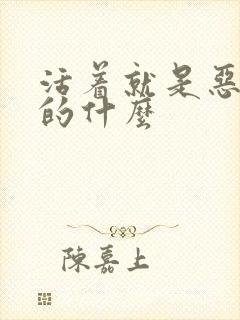 活着就是恶
的什麼
陳嘉上